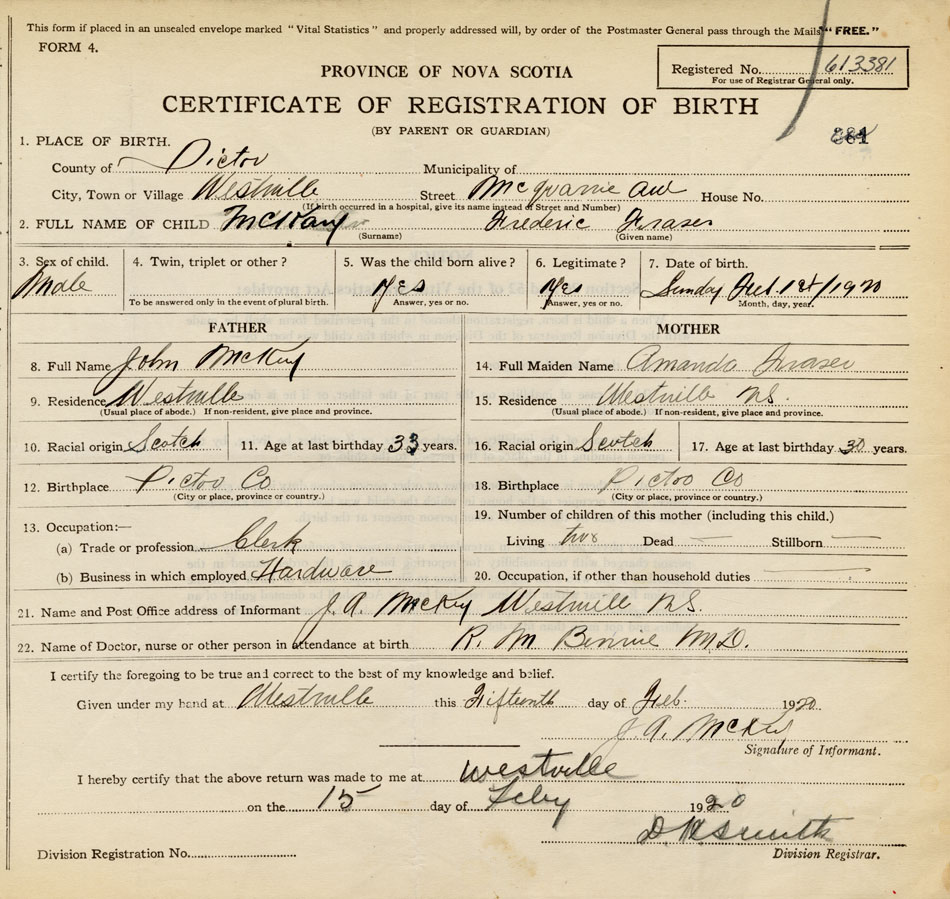 This form if placed in an unsealed envelope marked "Vital Statistics" and properly addressed will, by order of the Postmaster General pass through the Mails "FREE."
FORM 4.
PROVINCE OF NOVA SCOTIA
Registered No. 613381
For use of Registrar General only.
CERTIFICATE OF REGISTRATION OF BIRTH
(BY PARENT OR GUARDIAN)
1. PLACE OF BIRTH.
County of Pictou Municipality of
City, Town or Village Westville Street McQuarrie ave House No.
(If birth occurred in a hospital, give its name instead of Street and Number)
2. FULL NAME OF CHILD McKay Frederic Fraser
(Surname) (Given name)
3. Sex of child. 4. Twin, triplet or other? 5. Was the child born alive? 6. Legitimate? 7. Date of birth.
Male yes yes Sunday 1st/1920
To be answered only in the event of plural birth. Answer, yes or no. Answer, yes or no. Month, day, year.
FATHER MOTHER
8. Full Name John McKay
14. Full Maiden Name Amanda Fraser
9. Residence Westville
15. Residence Westville N.S.
(Usual place of abode.) If non-resident, give place and province.
(Usual place of abode.) If non-resident, give place and province.
10. Racial origin Scotch 11. Age at last birthday 33 years.
16. Racial origin Scotch 17. Age at last birthday 30 years.
12. Birthplace Pictou Co
18. Birthplace Pictou Co
(City or place, province or country.)
(City or place, province or country.)
13. Occupation:—
19. Number of children of this mother (including this child.)
(a) Trade or profession Clerk
Living two Dead — Stillborn —
(b) Business in which employed Hardware
20. Occupation, if other than household duties
21. Name and Post Office address of Informant J. A. McKay Westville N.S.
22. Name of Doctor, nurse or other person in attendance at birth R. M. Bennie M.D.
I certify the foregoing to be true and correct to the best of my knowledge and belief.
Given under my hand at Westville this Fifteenth day of Feb. 1920
J. A. McKay
Signature of Informant.
I hereby certify that the above return was made to me at Westville
on the 15 day of Feby 1920
D. H. Smith
Division Registrar.
Division Registration No.